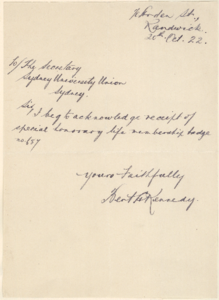 Borden St.,
Randwick.
20th Oct. 22.
The Secretary
Sydney University Union
Sydney.
Sir, I beg to acknowledge receipt of
special honorary life membership badge
no 57
Yours Faithfully
Kennedy.